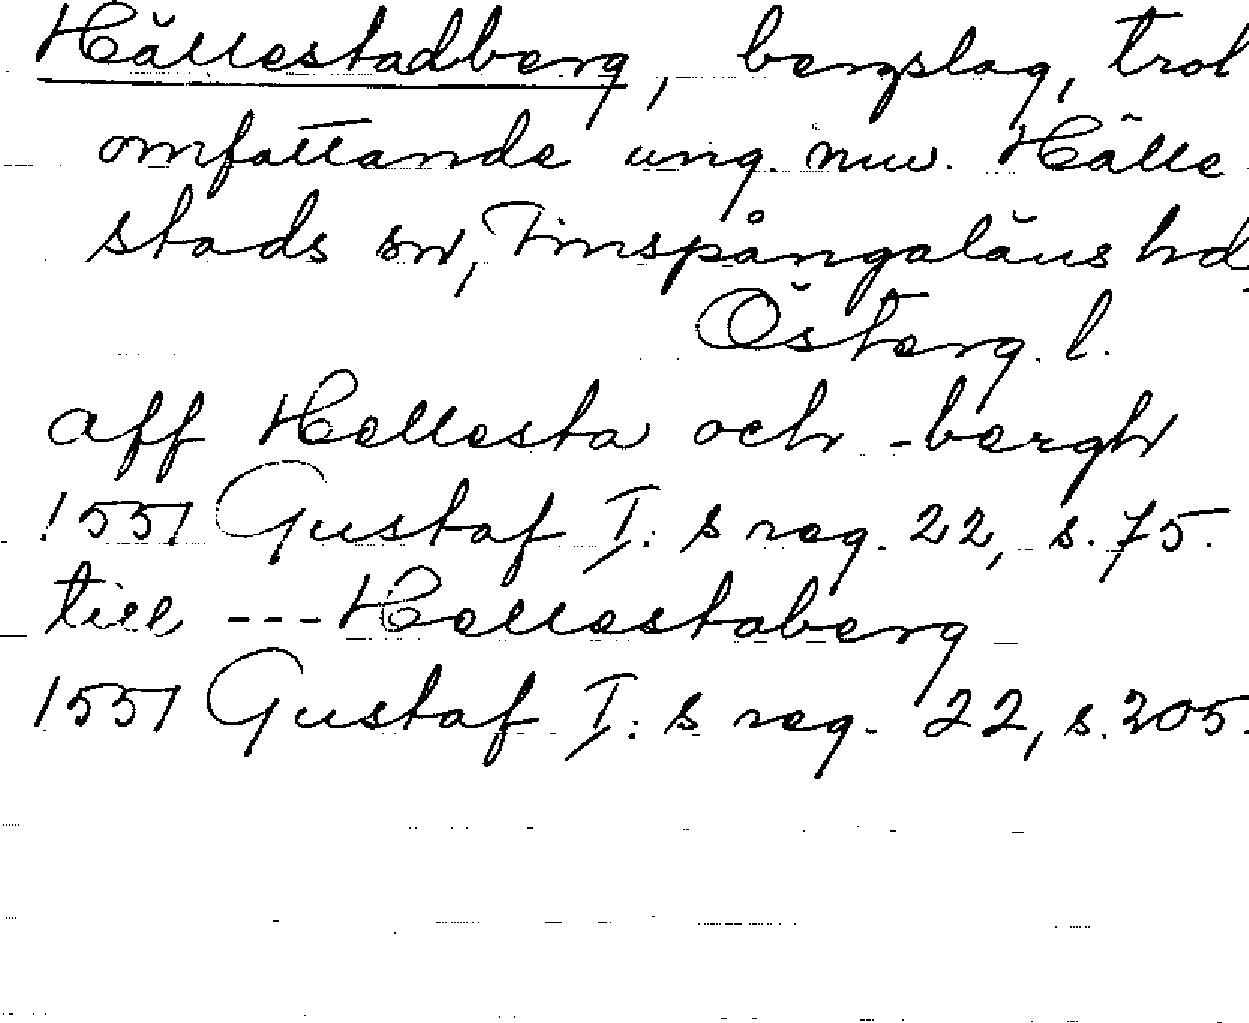 Hällestadberg, bergslag, trol
omfattande ung. nuv. Hälle
stads sn, Finspångaläns hd,
Österg. l.
aff Hellesta och -bergh
1551 Gustaf I: s reg. 22, s. 75.
till --- Hellestaberg
1551 Gustaf I: s reg. 22, s. 205.